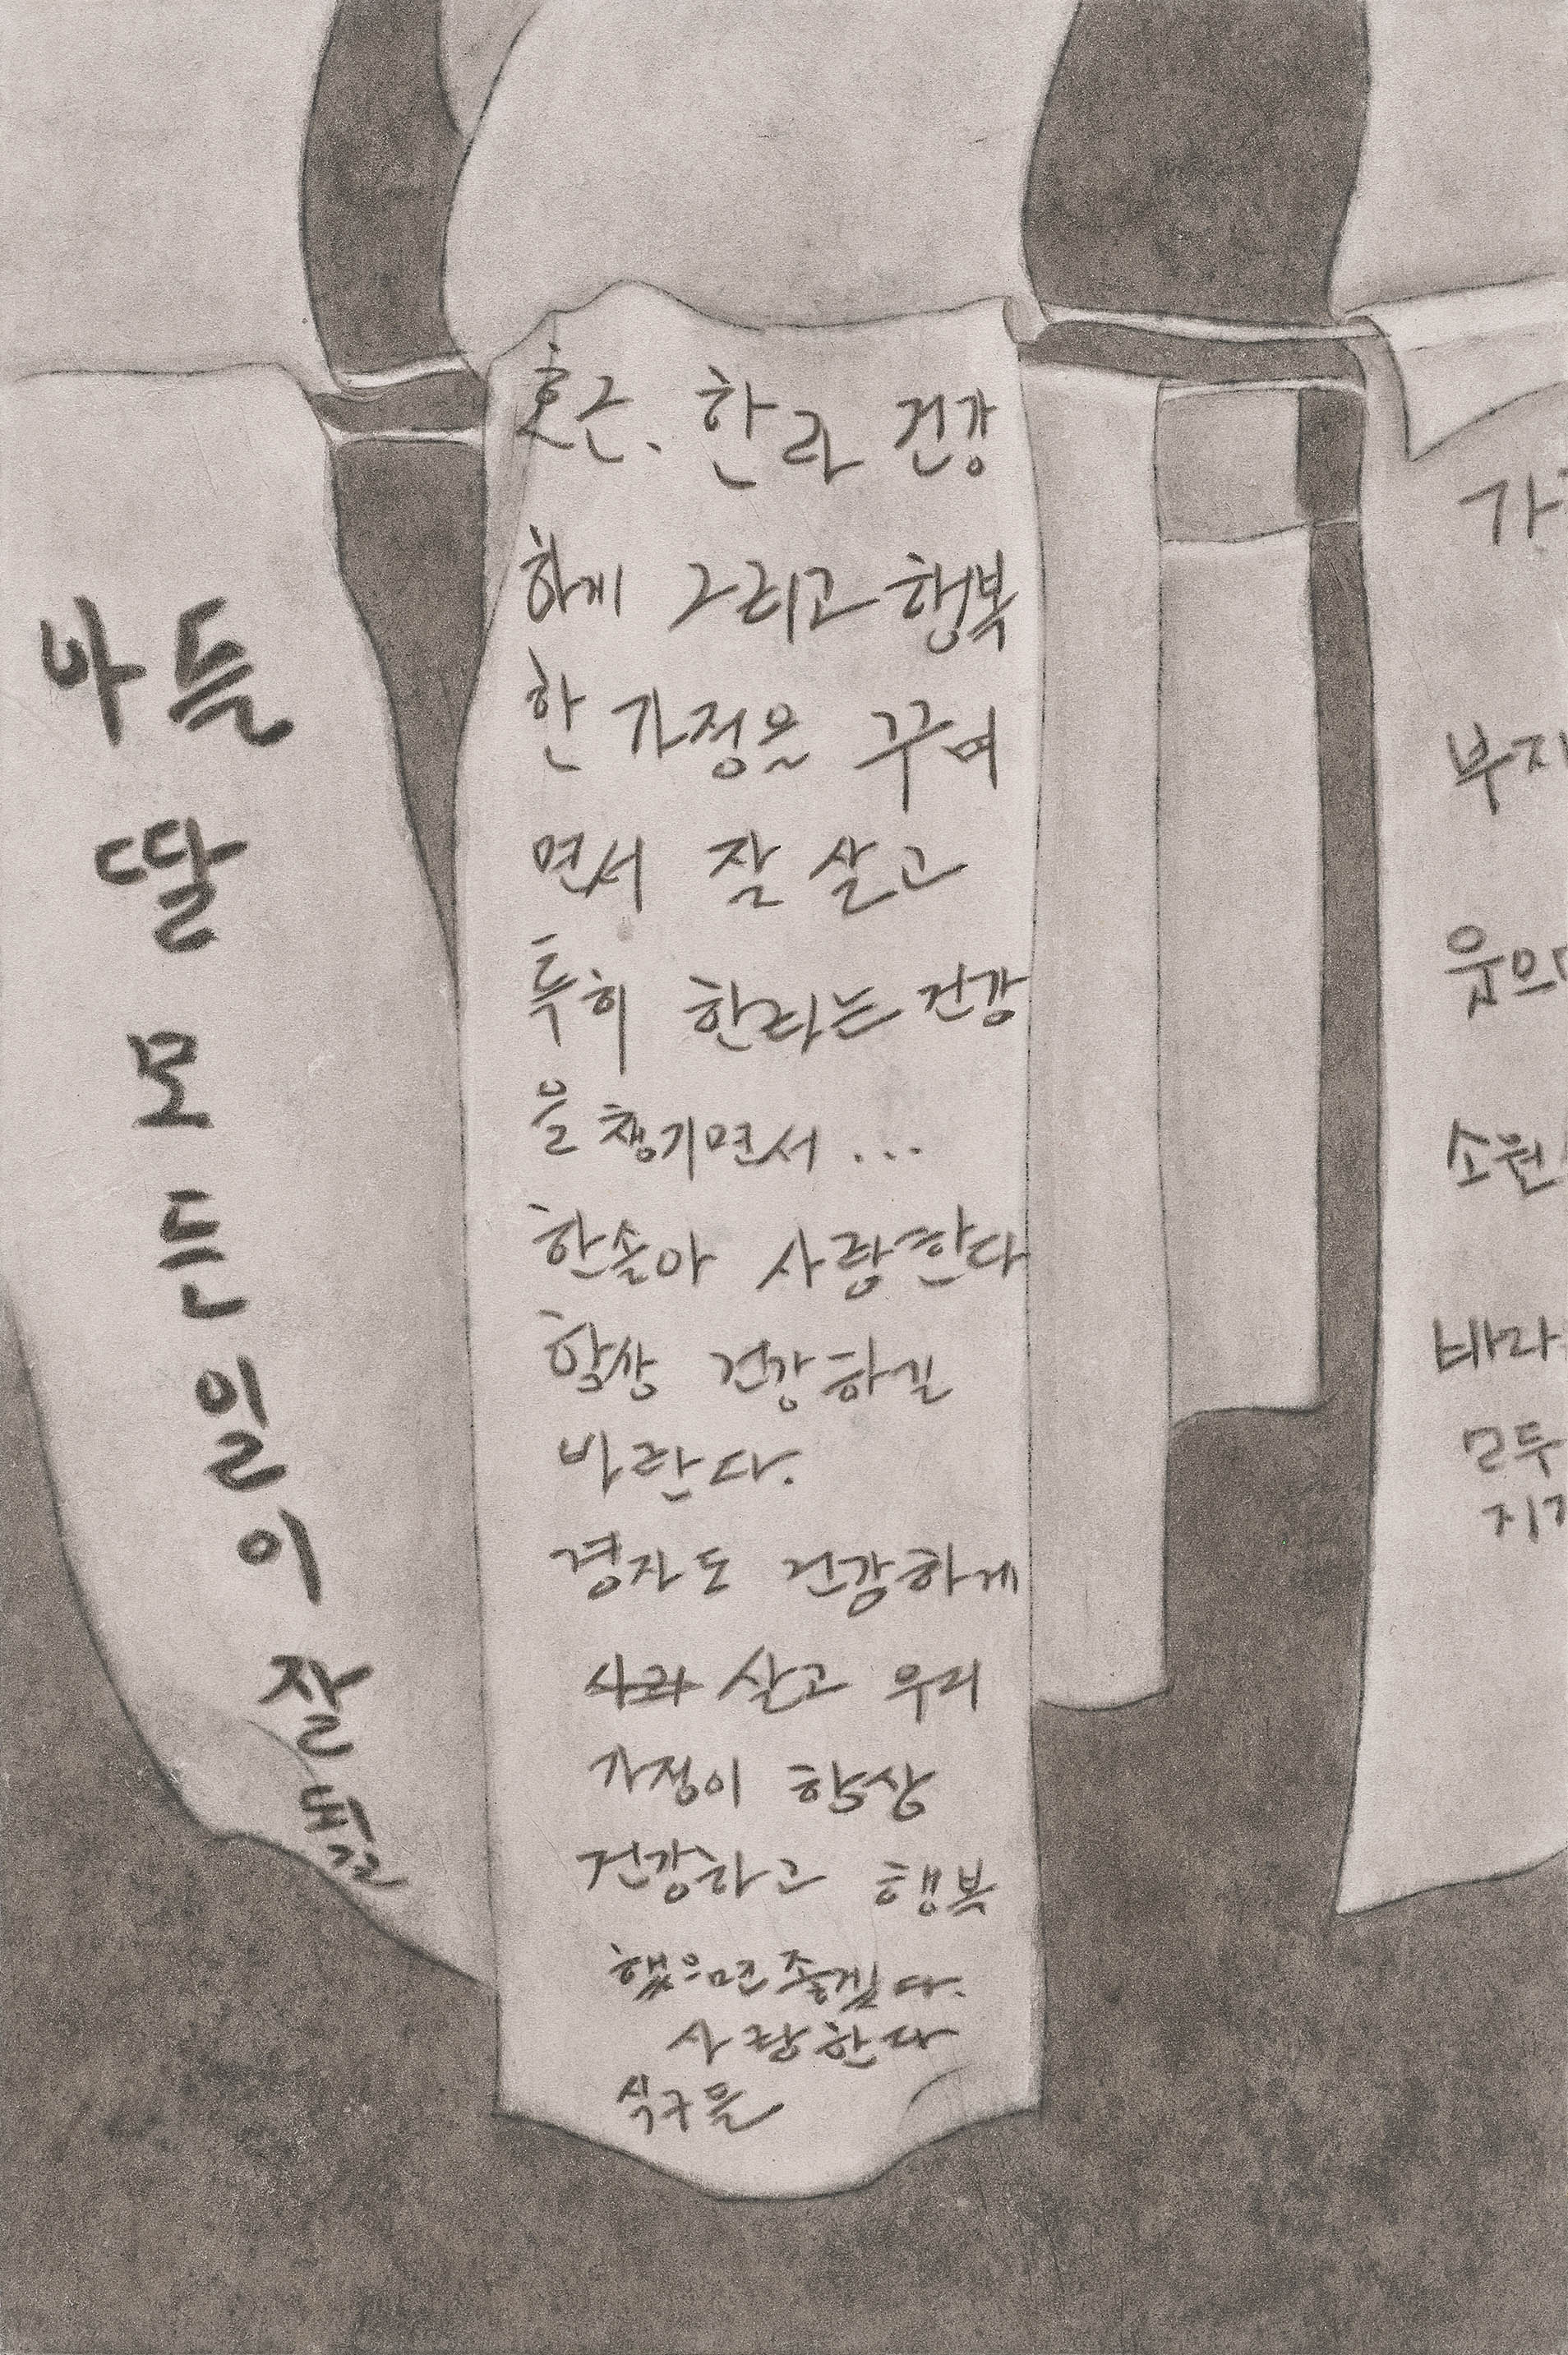 아들
딸
모
든
일
이
잘
되길
호근, 한라 건강
하게 그리고 행복
한 가정을 꾸며
면서 잘 살고
특히 한라는 건강
을 챙기면서 ...
한솔아 사랑한다
항상 건강하길
바란다.
경자도 건강하게
살고 우리
가정이 항상
건강하고 행복
했으면 좋겠다.
사랑한다
식구들
소원
모두